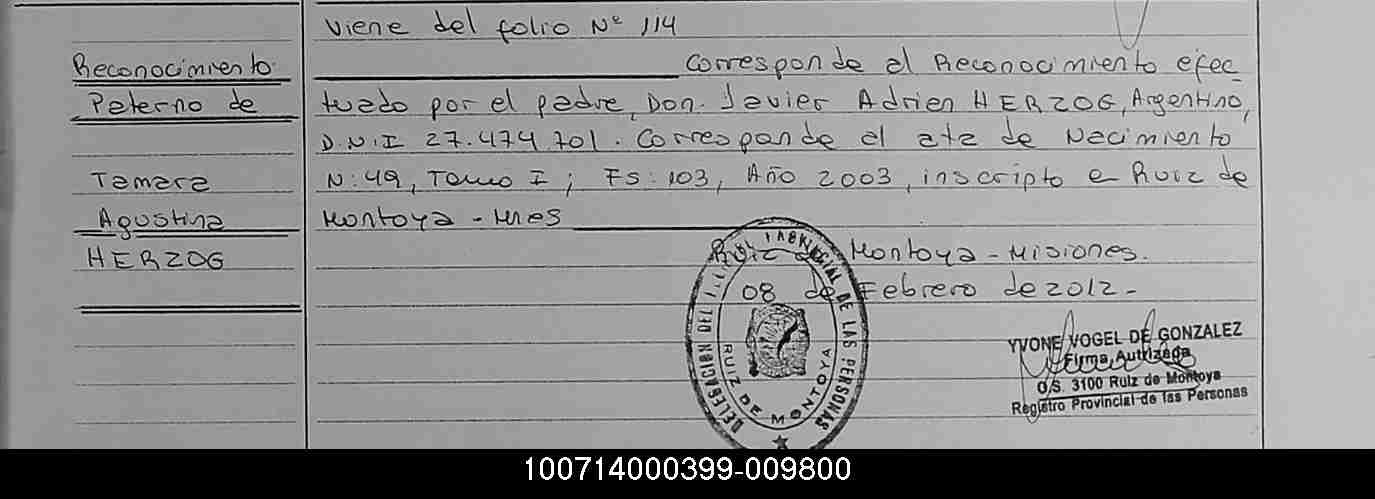 Viene del folio Nº 114
Reconocimiento
Paterno de
Tamara
Agustina
HERZOG
Corresponde al Reconocimiento efec
tuado por el padre, Don. Javier Adrian HERZOG, Argentino,
D.N.I 27.474.701. Corresponde al ata de Nacimiento
N:49, Tomo I; FS:103, Año 2003, inscripto e Ruiz de
Montoya - Mnes
Ruiz de Montoya - Misiones.
08 de Febrero de 2012-
DELEGACION DEL PROVINCIAL DE LAS PERSONAS
RUIZ DE MONTOYA
YVONE VOGEL DE GONZALEZ
Firma Autrizada
O/S. 3100 Ruiz de Montoya
Registro Provincial de las Personas
100714000399-009800